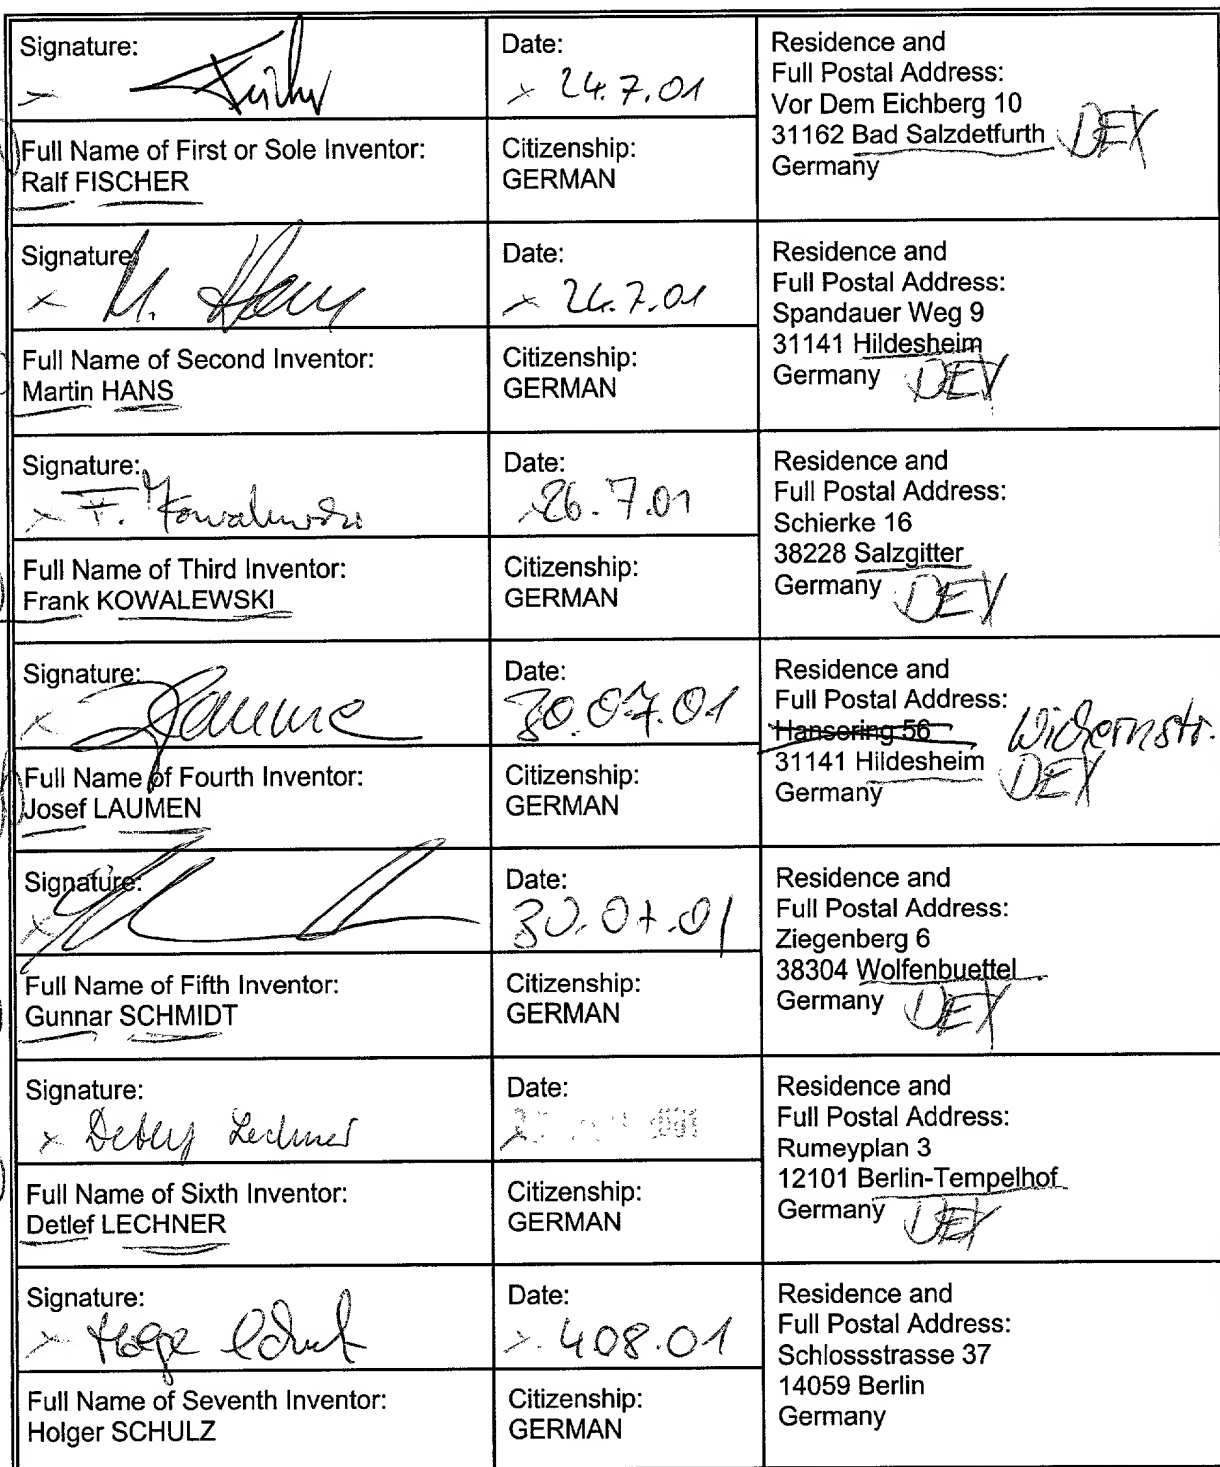 Signature:
Date:
× 24.7.01
Residence and
Full Postal Address:
Vor Dem Eichberg 10
31162 Bad Salzdetfurth DEX
Germany
Full Name of First or Sole Inventor:
Ralf FISCHER
Citizenship:
GERMAN
Signature:
× M. Hans
Date:
× 24.7.01
Residence and
Full Postal Address:
Spandauer Weg 9
31141 Hildesheim
Germany DEX
Full Name of Second Inventor:
Martin HANS
Citizenship:
GERMAN
Signature:
× F. Kowalewski
Date:
× 26.7.01
Residence and
Full Postal Address:
Schierke 16
38228 Salzgitter
Germany DEX
Full Name of Third Inventor:
Frank KOWALEWSKI
Citizenship:
GERMAN
Signature:
Date:
30.07.01
Residence and
Full Postal Address:
Hansering 56
31141 Hildesheim DEX
Germany
Full Name of Fourth Inventor:
Josef LAUMEN
Citizenship:
GERMAN
Signature:
Date:
30.07.01
Residence and
Full Postal Address:
Ziegenberg 6
38304 Wolfenbuettel
Germany DEX
Full Name of Fifth Inventor:
Gunnar SCHMIDT
Citizenship:
GERMAN
Signature:
× Detlef Lechner
Date:
Residence and
Full Postal Address:
Rumeyplan 3
12101 Berlin-Tempelhof
Germany DEX
Full Name of Sixth Inventor:
Detlef LECHNER
Citizenship:
GERMAN
Signature:
× Holger Schulz
Date:
× 408.01
Residence and
Full Postal Address:
Schlossstrasse 37
14059 Berlin
Germany
Full Name of Seventh Inventor:
Holger SCHULZ
Citizenship:
GERMAN